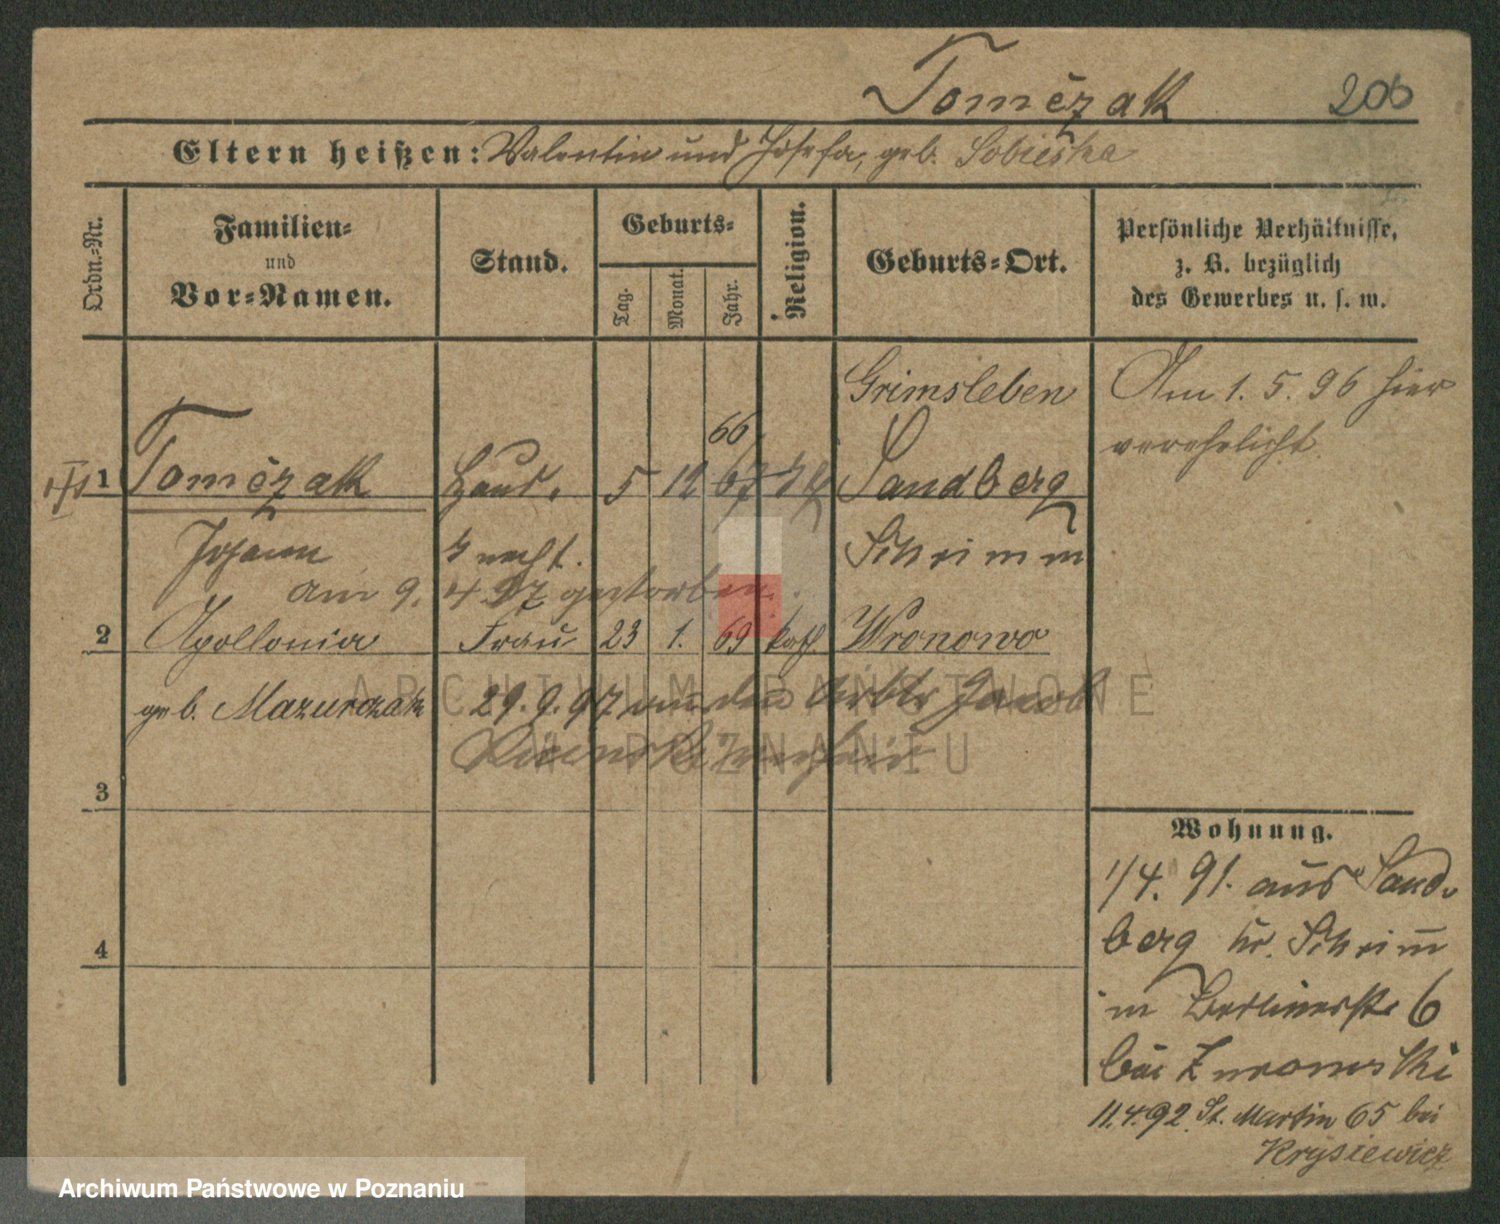 Tomczak 206
Eltern heißen: Valentin und Josefa, geb. Sobieska
Ordn.-Nr.
Familien-
und
Vor-Namen.
Stand.
Geburts-
Tag.
Monat.
Jahr.
Religion.
Geburts-Ort.
Persönliche Verhältnisse,
z. B. bezüglich
des Gewerbes u. s. w.
Grimsleben
Am 1. 5. 96 hier
verehelicht.
66
1 Tomczak Haus- 5 12 67 Sandberg
Johann knecht. Schrimm
am 9. 4. 97 gestorben.
2 Apollonia Frau 23 1. 69 kath. Wronowo
geb. Mazurczak 29. 9. 97 an den Arbtr Jacob
ARCHIWUM PAŃSTWOWE
W POZNANIU
3
4
Wohnung.
1/4. 91. aus Sand-
berg Kr. Schrim̅
in Berlinerstr 6
bei Zuromski
11.4.92. St. Martin 65 bei
Krysiewicz
Archiwum Państwowe w Poznaniu